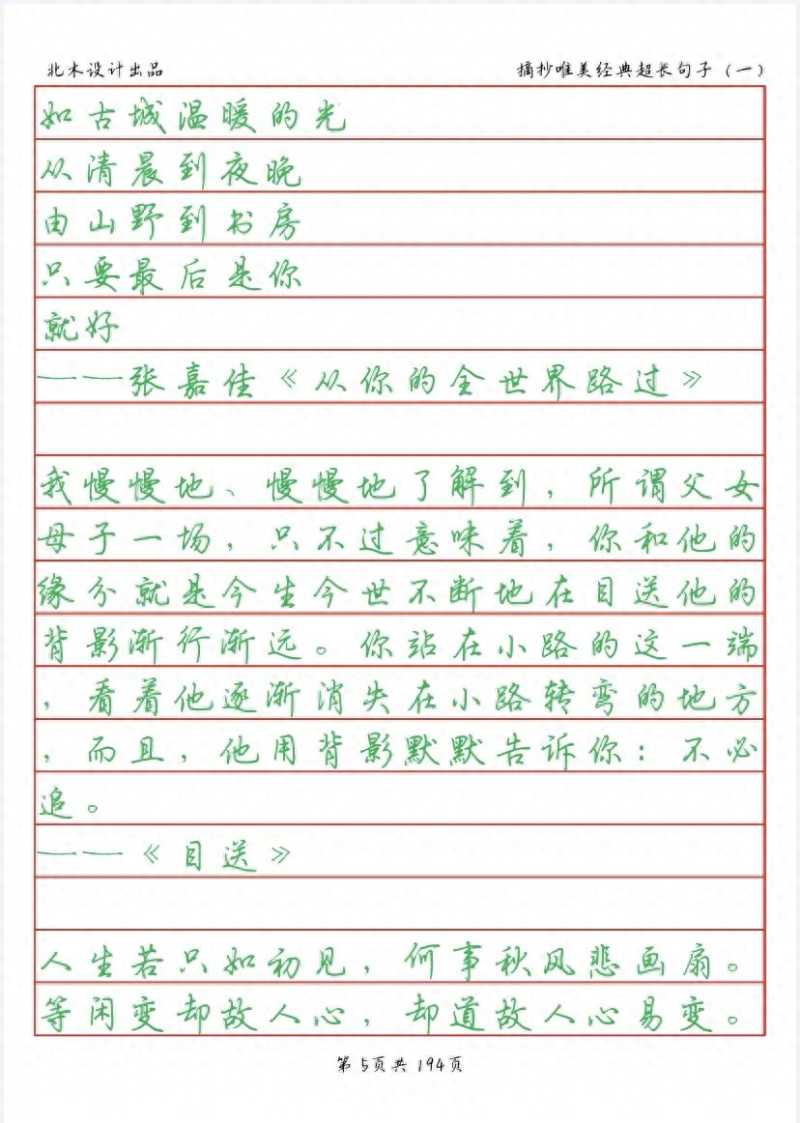 北木设计出品 摘抄唯美经典超长句子（一）
如古城温暖的光
从清晨到夜晚
由山野到书房
只要最后是你
就好
——张嘉佳《从你的全世界路过》
我慢慢地、慢慢地了解到，所谓父女
母子一场，只不过意味着，你和他的
缘分就是今生今世不断地在目送他的
背影渐行渐远。你站在小路的这一端
，看着他逐渐消失在小路转弯的地方
，而且，他用背影默默告诉你：不必
追。
——《目送》
人生若只如初见，何事秋风悲画扇。
等闲变却故人心，却道故人心易变。
第5页共194页